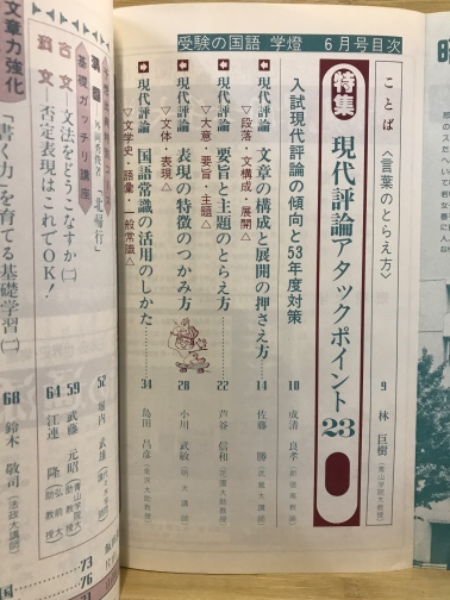 受験の国語 学燈 6月号目次
ことば〈言葉のとらえ方〉 9 林 巨樹 (青山学院大教授)
特集 現代評論アタックポイント23
入試現代評論の傾向と53年度対策 10 成清 良孝
現代評論 文章の構成と展開の押さえ方 14 佐藤 勝
▽段落・文構成・展開△
現代評論 要旨と主題のとらえ方 22 芦谷 信和
▽大意・要旨・主題△
現代評論 表現の特徴のつかみ方 28 小川 武敏 (明大講師)
▽文体・表現△
現代評論 国語常識の活用のしかた 34 島田 昌彦 (金沢大助教授)
▽文学史・語彙・一般常識△
基礎ガッチリ講座
「北帰行」 52 堀内 武雄
古文—文法をどうこなすか(二) 59 武藤 元昭 (青山学院大助教授)
—否定表現はこれでOK! 64 江連 隆 (弘前大助教授)
文章力強化
「書く力」を育てる基礎学習(二) 68 鈴木 敬司 (法政大講師)
73
76